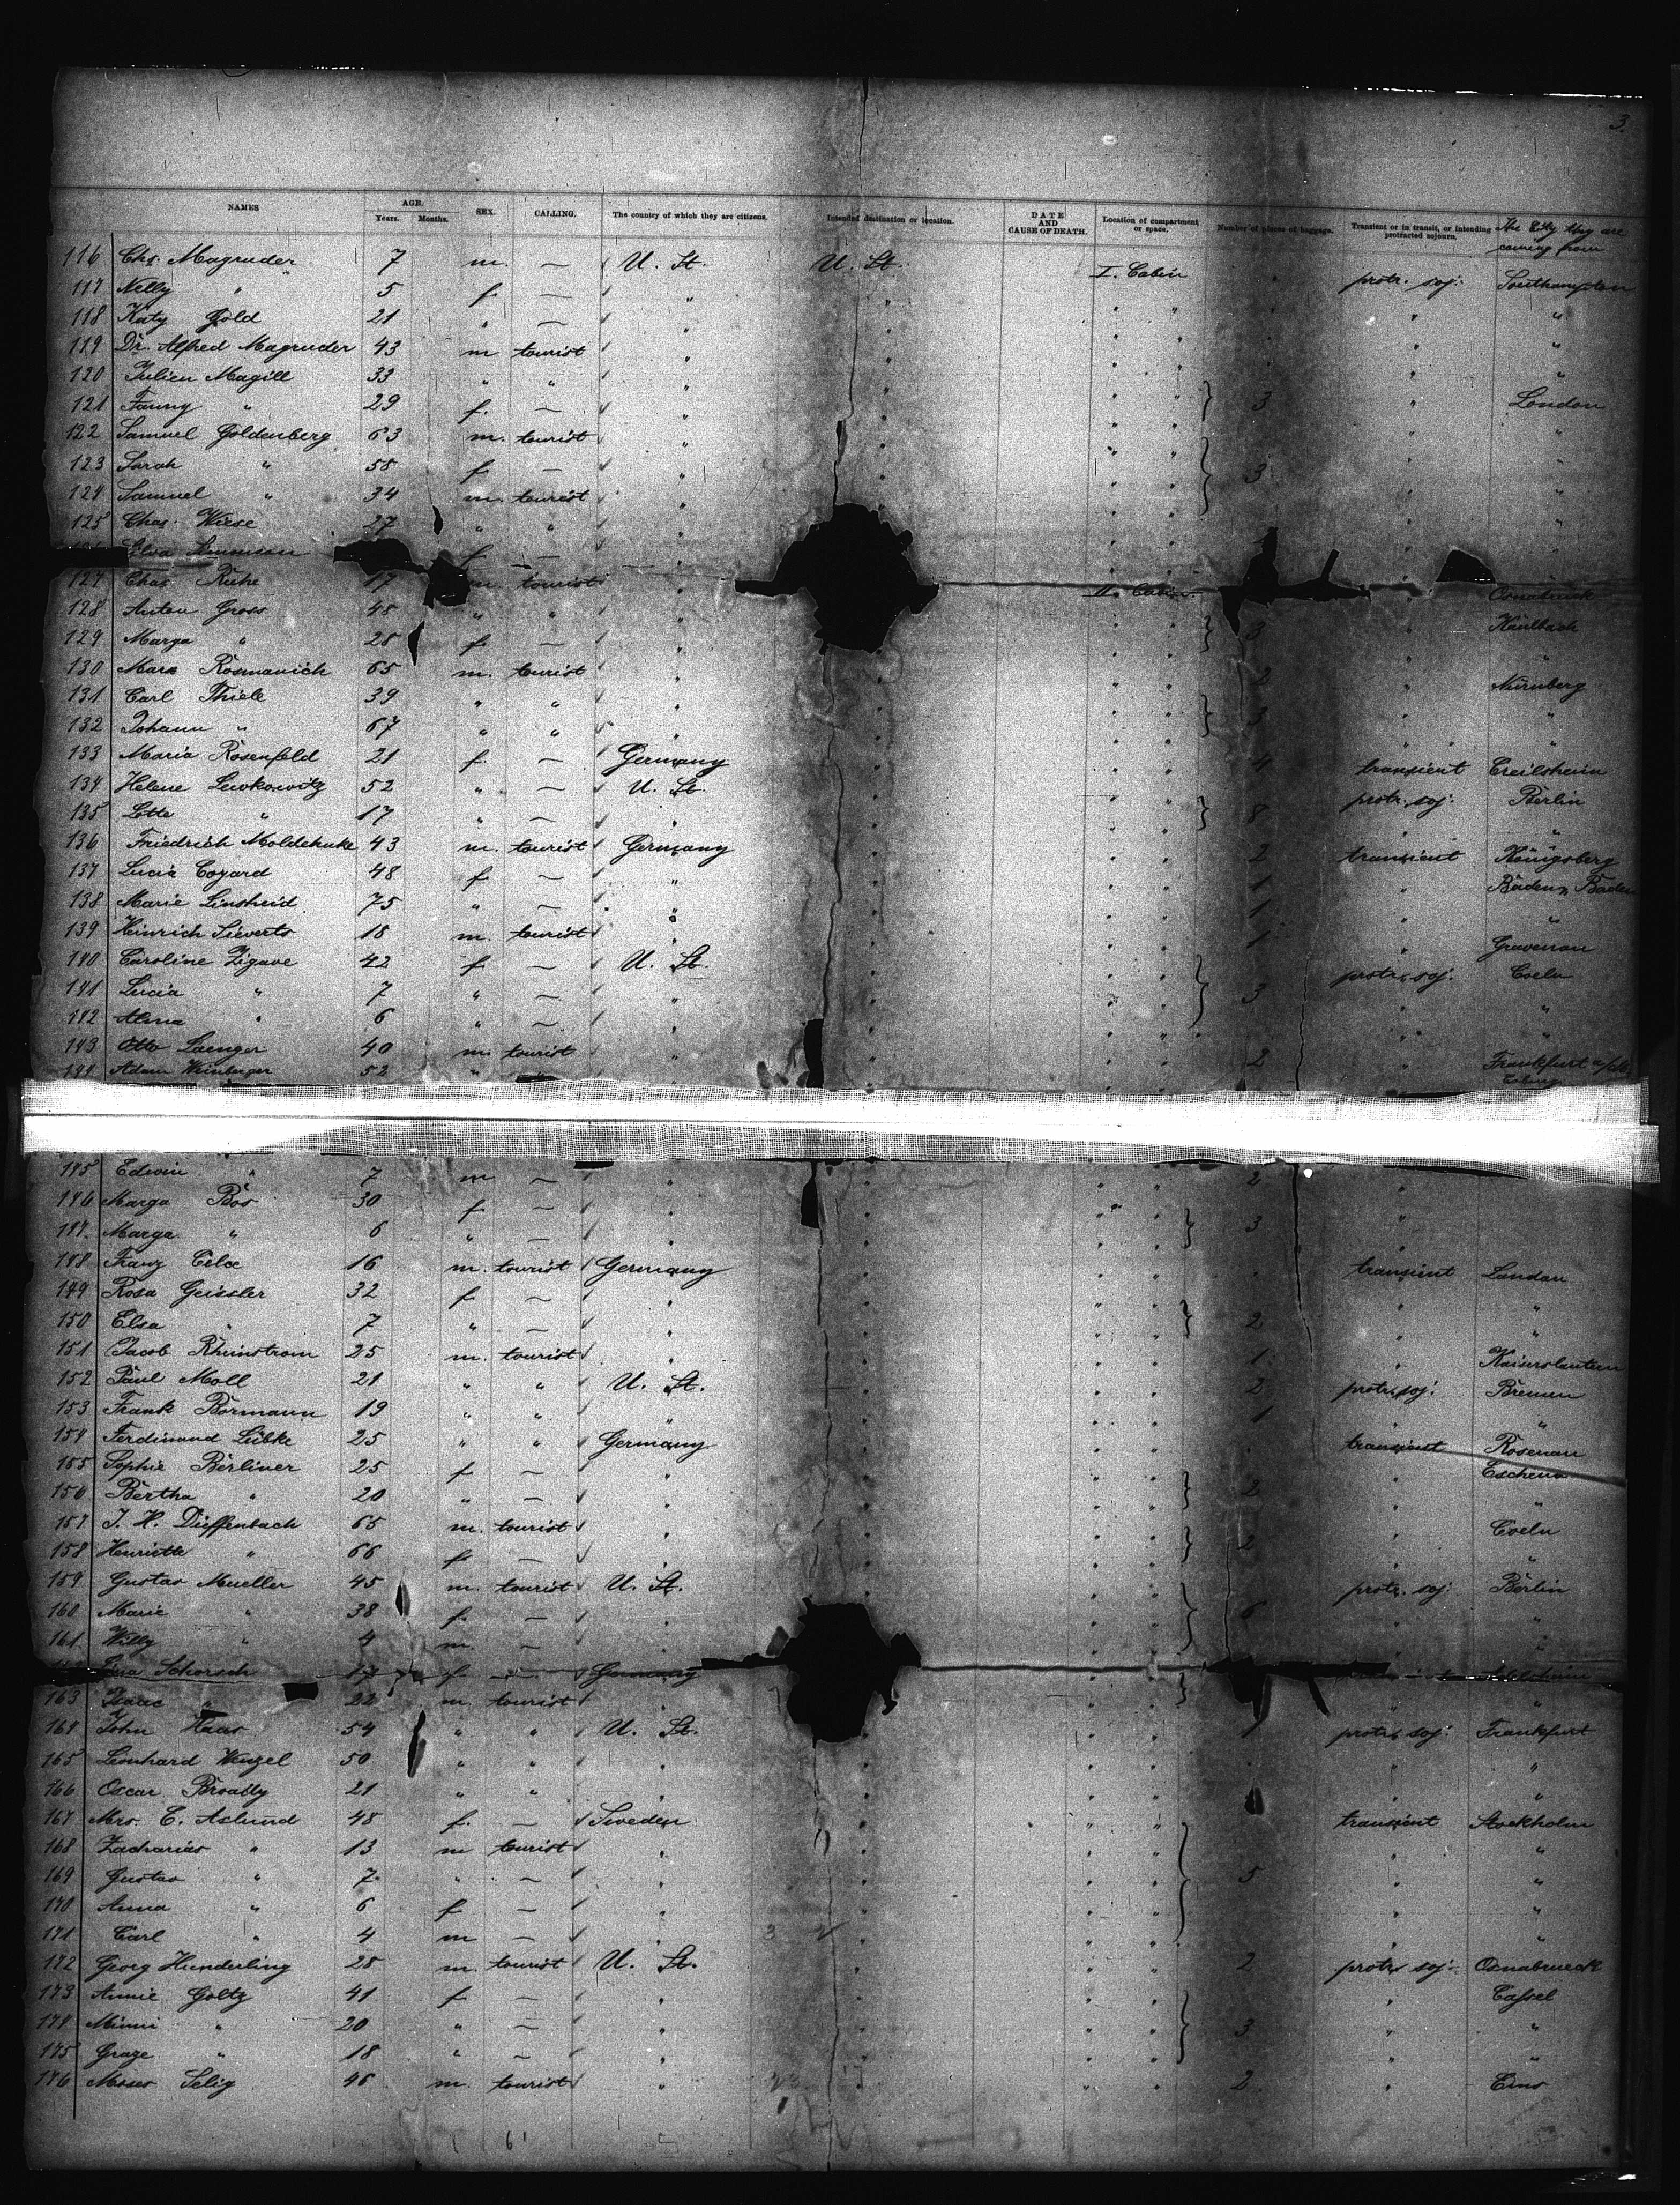 3.
NAMES AGE. Years. Months. SEX. CALLING. The country of which they are citizens. Intended destination or location. DATE AND CAUSE OF DEATH. Location of compartment or space. Number of pieces of baggage. Transient or in transit, or intending protracted sojourn. The City they are coming from
116 Chs. Magruder 7 m. — U. St. U. St. I. Cabin protr. soj. Southampton
117 Nelly " 5 f — " " " " " "
118 Katy Gold 21 " — " " " " " "
119 Dr. Alfred Magruder 43 m tourist " " " " " "
120 Julien Magill 33 " " " " " " " London
121 Fanny " 29 f. — " " " " 3 " "
122 Samuel Goldenberg 63 m. tourist " " " " " "
123 Sarah " 58 f — " " " " 3 " "
124 Samuel " 34 m. tourist " " " " " "
125 Chas. Wiese 27 " " " " " " "
f —
127 Chas Ruhe 17 m tourist " II. Cabin " Osnabruck
128 Anton Gross 48 " " " " " " Kaulbach
129 Marga " 28 f — " " " 3 " "
130 Rosmanich 65 m. tourist " " " " 2 " Nürnberg
131 Carl Thiele 39 " " " " " " " "
132 Johann " 67 " " " " " " 3 " "
133 Maria Rosenfeld 21 f. — Germany " " " 4 transient Creilsheim
134 Helene Lewkowitz 52 " — U. St. " " " protr. soj. Berlin
135 Lotte " 17 " — " " " " 8 " "
136 Friedrich Moldehnke 43 m. tourist Germany " " " 2 transient Königsberg
137 Lucia 48 f — " " " " 1 " Baden Baden
138 Marie Linsheid 75 " — " " " " 1 " "
139 Heinrich Sieverts 18 m. tourist " " " " 1 " Gravenau
140 Caroline Zigave 42 f — U. St. " " " protr. soj. Coeln
141 Lucia " 7 " — " " " " 3 " "
142 Alma " 6 " — " " " " " "
143 Otto Laenger 40 m. tourist " " " " 2 " Frankfurt a/M
144 Adam Weinberger 52 "
145 Edwin " 7 m — " " " " 2 "
146 Marga Bos 30 f — " " " " "
147 Marga " 6 " — " " " " 3
148 Franz 16 m. tourist Germany " " " transient Landau
149 Rosa Geissler 32 f — " " " " " "
150 Elsa " 7 " — " " " " 2 " "
151 Jacob Rheinstrom 25 m. tourist " " " " 1 " Kaiserslautern
152 Paul Moll 21 " " U. St. " " " 2 protr. soj. Bremen
153 Frank Bormann 19 " " " " " " 1 " "
154 Ferdinand Lübke 25 " " Germany " " " transient Rosenau
155 Sophie Berliner 25 f — " " " " " Eschena
156 Bertha " 20 " — " " " " 2 " "
157 J. H. Dieffenbach 65 m. tourist " " " " " Coeln
158 Henriette " 66 f — " " " " 2 " "
159 Gustav Mueller 45 m. tourist U. St. " " " protr. soj. Berlin
160 Marie " 38 f. — " " " " 6 " "
161 Willy " 4 m. — " " " " " "
Schorsch 17 f — Germany
163 Isaac " 22 m. tourist " " " " "
164 John Haas 54 " " U. St. " " 1 protr. soj. Frankfurt
165 Leonhard Wenzel 50 " " " " " " " "
166 Oscar 21 " " " " " " " "
167 Mrs. C. Aslund 48 f. — Sweden " " " transient Stockholm
168 Zacharias " 13 m tourist " " " " " "
169 Gustav " 7 " — " " " " 5 " "
170 Anna " 6 f — " " " " " "
171 Carl " 4 m — " " " " " "
172 Georg Hunderling 28 m. tourist U. St. " " " 2 protr. soj. Osnabrueck
173 Annie Goltz 41 f — " " " " " Cassel
174 Minni " 20 " — " " " " 3 " "
175 Graze " 18 " — " " " " " "
176 Moses Selig 46 m. tourist " " " " 2 " Ems